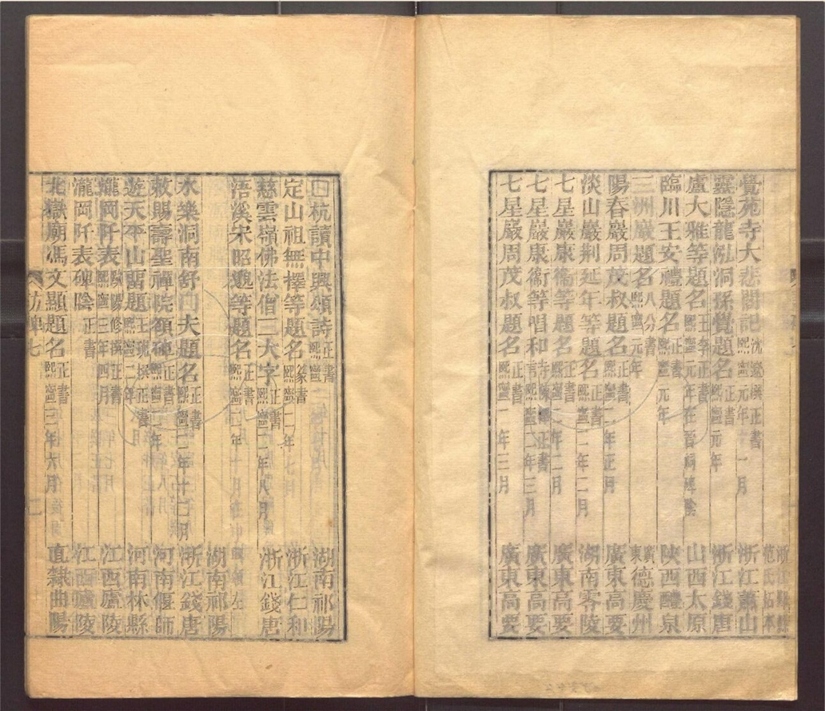 覺苑寺大悲閣記 沈 撰正書 熙寧元年 月 浙江蕭山
靈隱龍泓洞孫覺題名 正書 熙寧元年 浙江錢唐
盧大雅等題名 正書 熙寧元年在晉祠碑陰 山西太原
臨川王安禮題名 正書 熙寧元年 陝西醴泉
三洲巖題名 八分書 熙寧元年 廣東德慶州
陽春巖周茂叔題名 正書 熙寧二年正月 廣東高要
淡山巖荆延年等題名 正書 熙寧二年二月 湖南零陵
七星巖康衛等題名 正書 熙寧二年二月 廣東高要
七星巖康衛等唱和 正書 熙寧二年三月 廣東高要
七星巖周茂叔題名 正書 熙寧二年三月 廣東高要
杭讀中興頌詩 正書 熙寧二年 湖南祁陽
定山祖無擇等題名 篆書 熙寧二年七月 浙江仁和
慈雲嶺佛法僧三大字 正書 熙寧二年八月 浙江錢唐
浯溪宋昭邈等題名 正書 熙寧二年十月 湖南祁陽
水樂洞南舒 夫題名 正書 熙寧二年十二月 浙江錢唐
敕賜壽聖禪院額碑 正書 熙寧二年 河南偃師
遊天平山留題 正書 熙寧二年 河南林縣
瀧岡阡表 歐陽修撰正書 熙寧三年四月 江西廬陵
瀧岡阡表碑陰 正書 江西廬陵
北嶽廟馮文顯題名 正書 熙寧三年六月 直隸曲陽
訪碑七